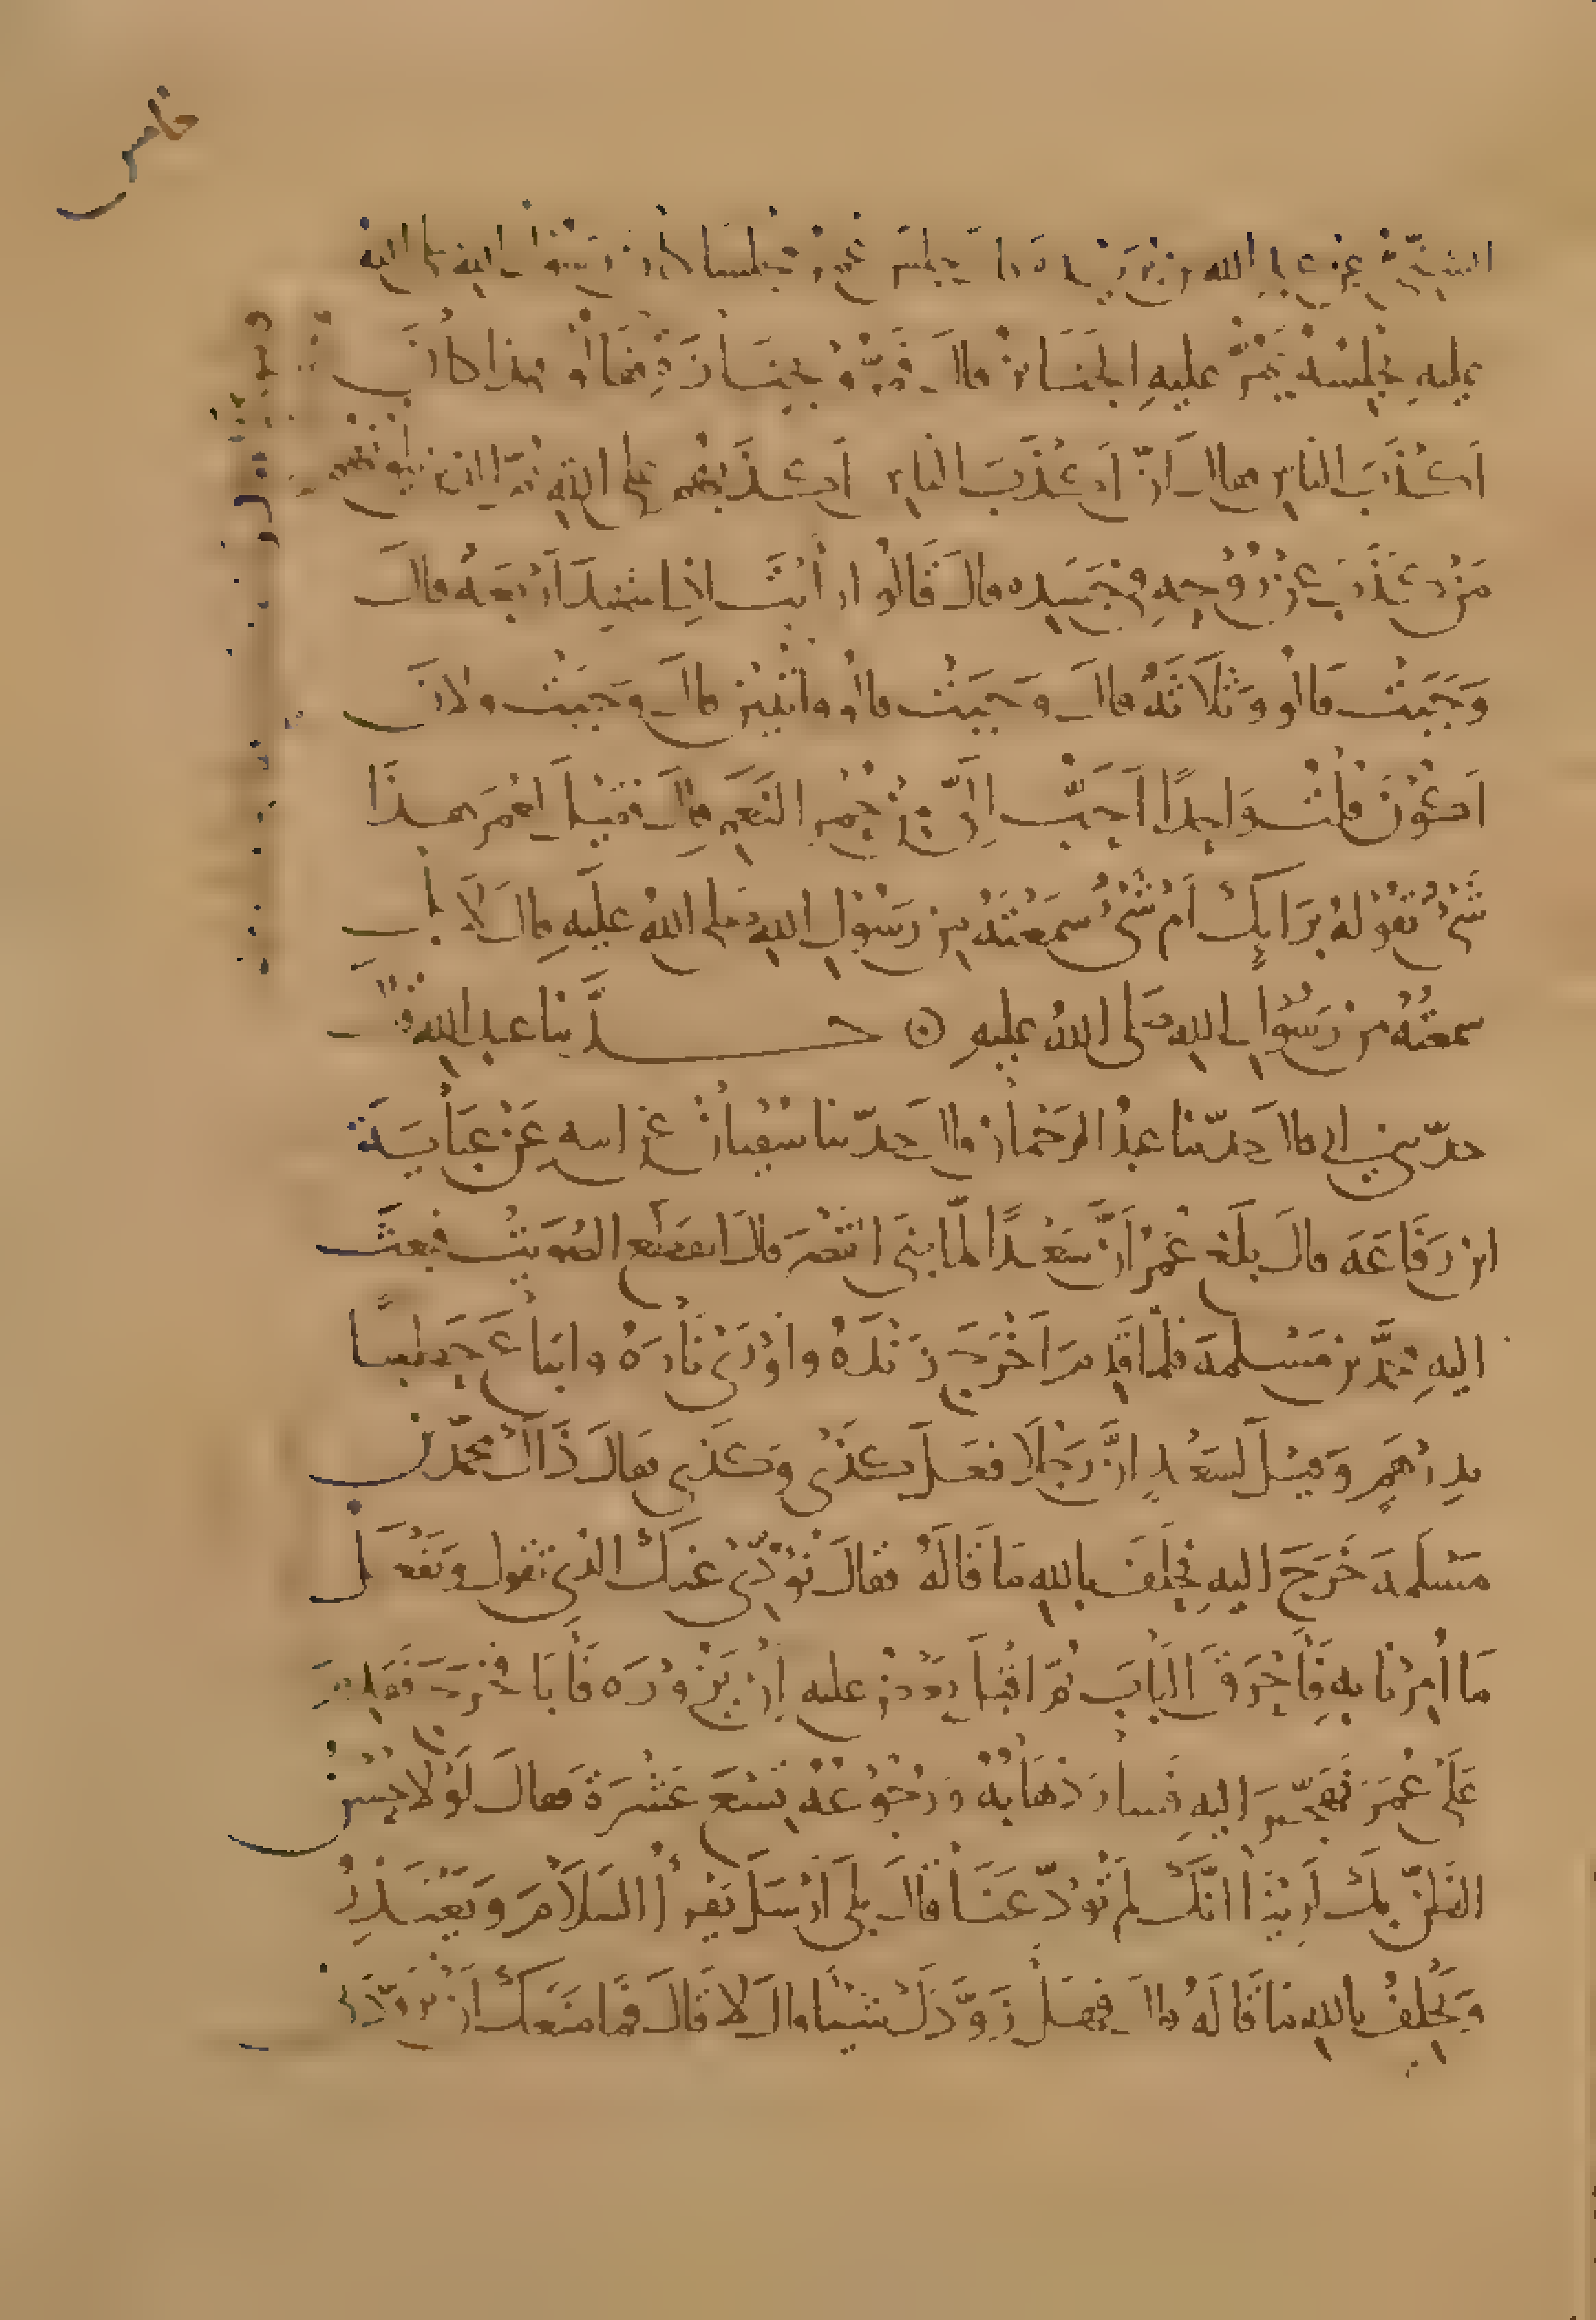 خامس
عن عبد الله بن بريدة قال جلس عمر مجلسا كان رسول الله صلى الله
عليه يجلسه يمر عليه الجنائز قال فمروا بجنازة فقالوا هذا كان
اكذب الناس فقال ان اكذب الناس اكذبهم على الله ثم الذين يلونهم
من كذب على روحه في جسده قال قالوا ارأيت اذا شهد اربعة قال
وجبت قالوا وثلاثة قال وجبت قالوا واثنين قال وجبت ولان
اكون قلت واحدا احب الي من حمر النعم قال فقيل لعمر هذا
شئ تقوله برايك ام شئ سمعته من رسول الله صلى الله عليه قال لا بل
سمعته من رسول الله صلى الله عليه ۞ حدثنا عبد الله قال
حدثني ابي قال حدثنا عبد الرحمان قال حدثنا سفيان عن ابيه عن عباية
ابن رفاعة قال بلغ عمر ان سعدا لما بنى القصر قال انقطع الصويت فبعث
اليه محمد بن مسلمة فلما قدم اخرج زنده واورى ناره وابتاع حطبا
بدرهم وقيل لسعد ان رجلا فعل كذى وكذى فقال ذاك محمد بن
مسلمة خرج اليه فحلف بالله ما قاله فقال نؤدي عنك الذي تقول ونفعل
ما امرنا به فاحرق الباب ثم اقبل يعرض عليه ان يزوده فابا فخرج فقدم
على عمر فهجر اليه فسار ذهابه ورجوعه تسع عشرة فقال لولا حسن
الظن بك لرينا انك لم تؤد عنا قال بلى ارسل يقرأ السلام ويعتذر
ويحلف بالله ما قاله قال فهل زودك شيئا قال لا قال فما منعك ان تزودني